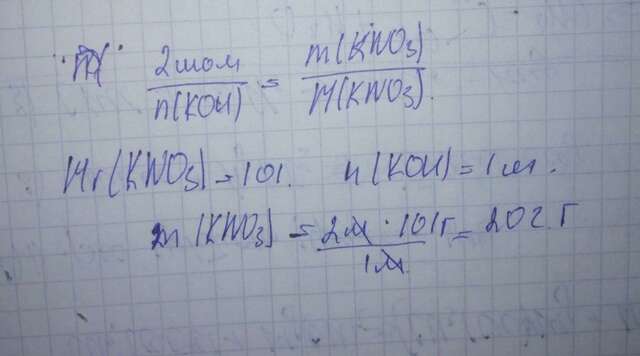 2мол / n(KOH) = m(KNO3) / M(KNO3).
Mr(KNO3) = 101. n(KOH) = 1м.
m(KNO3) = 2м · 101г / 1м = 202. г